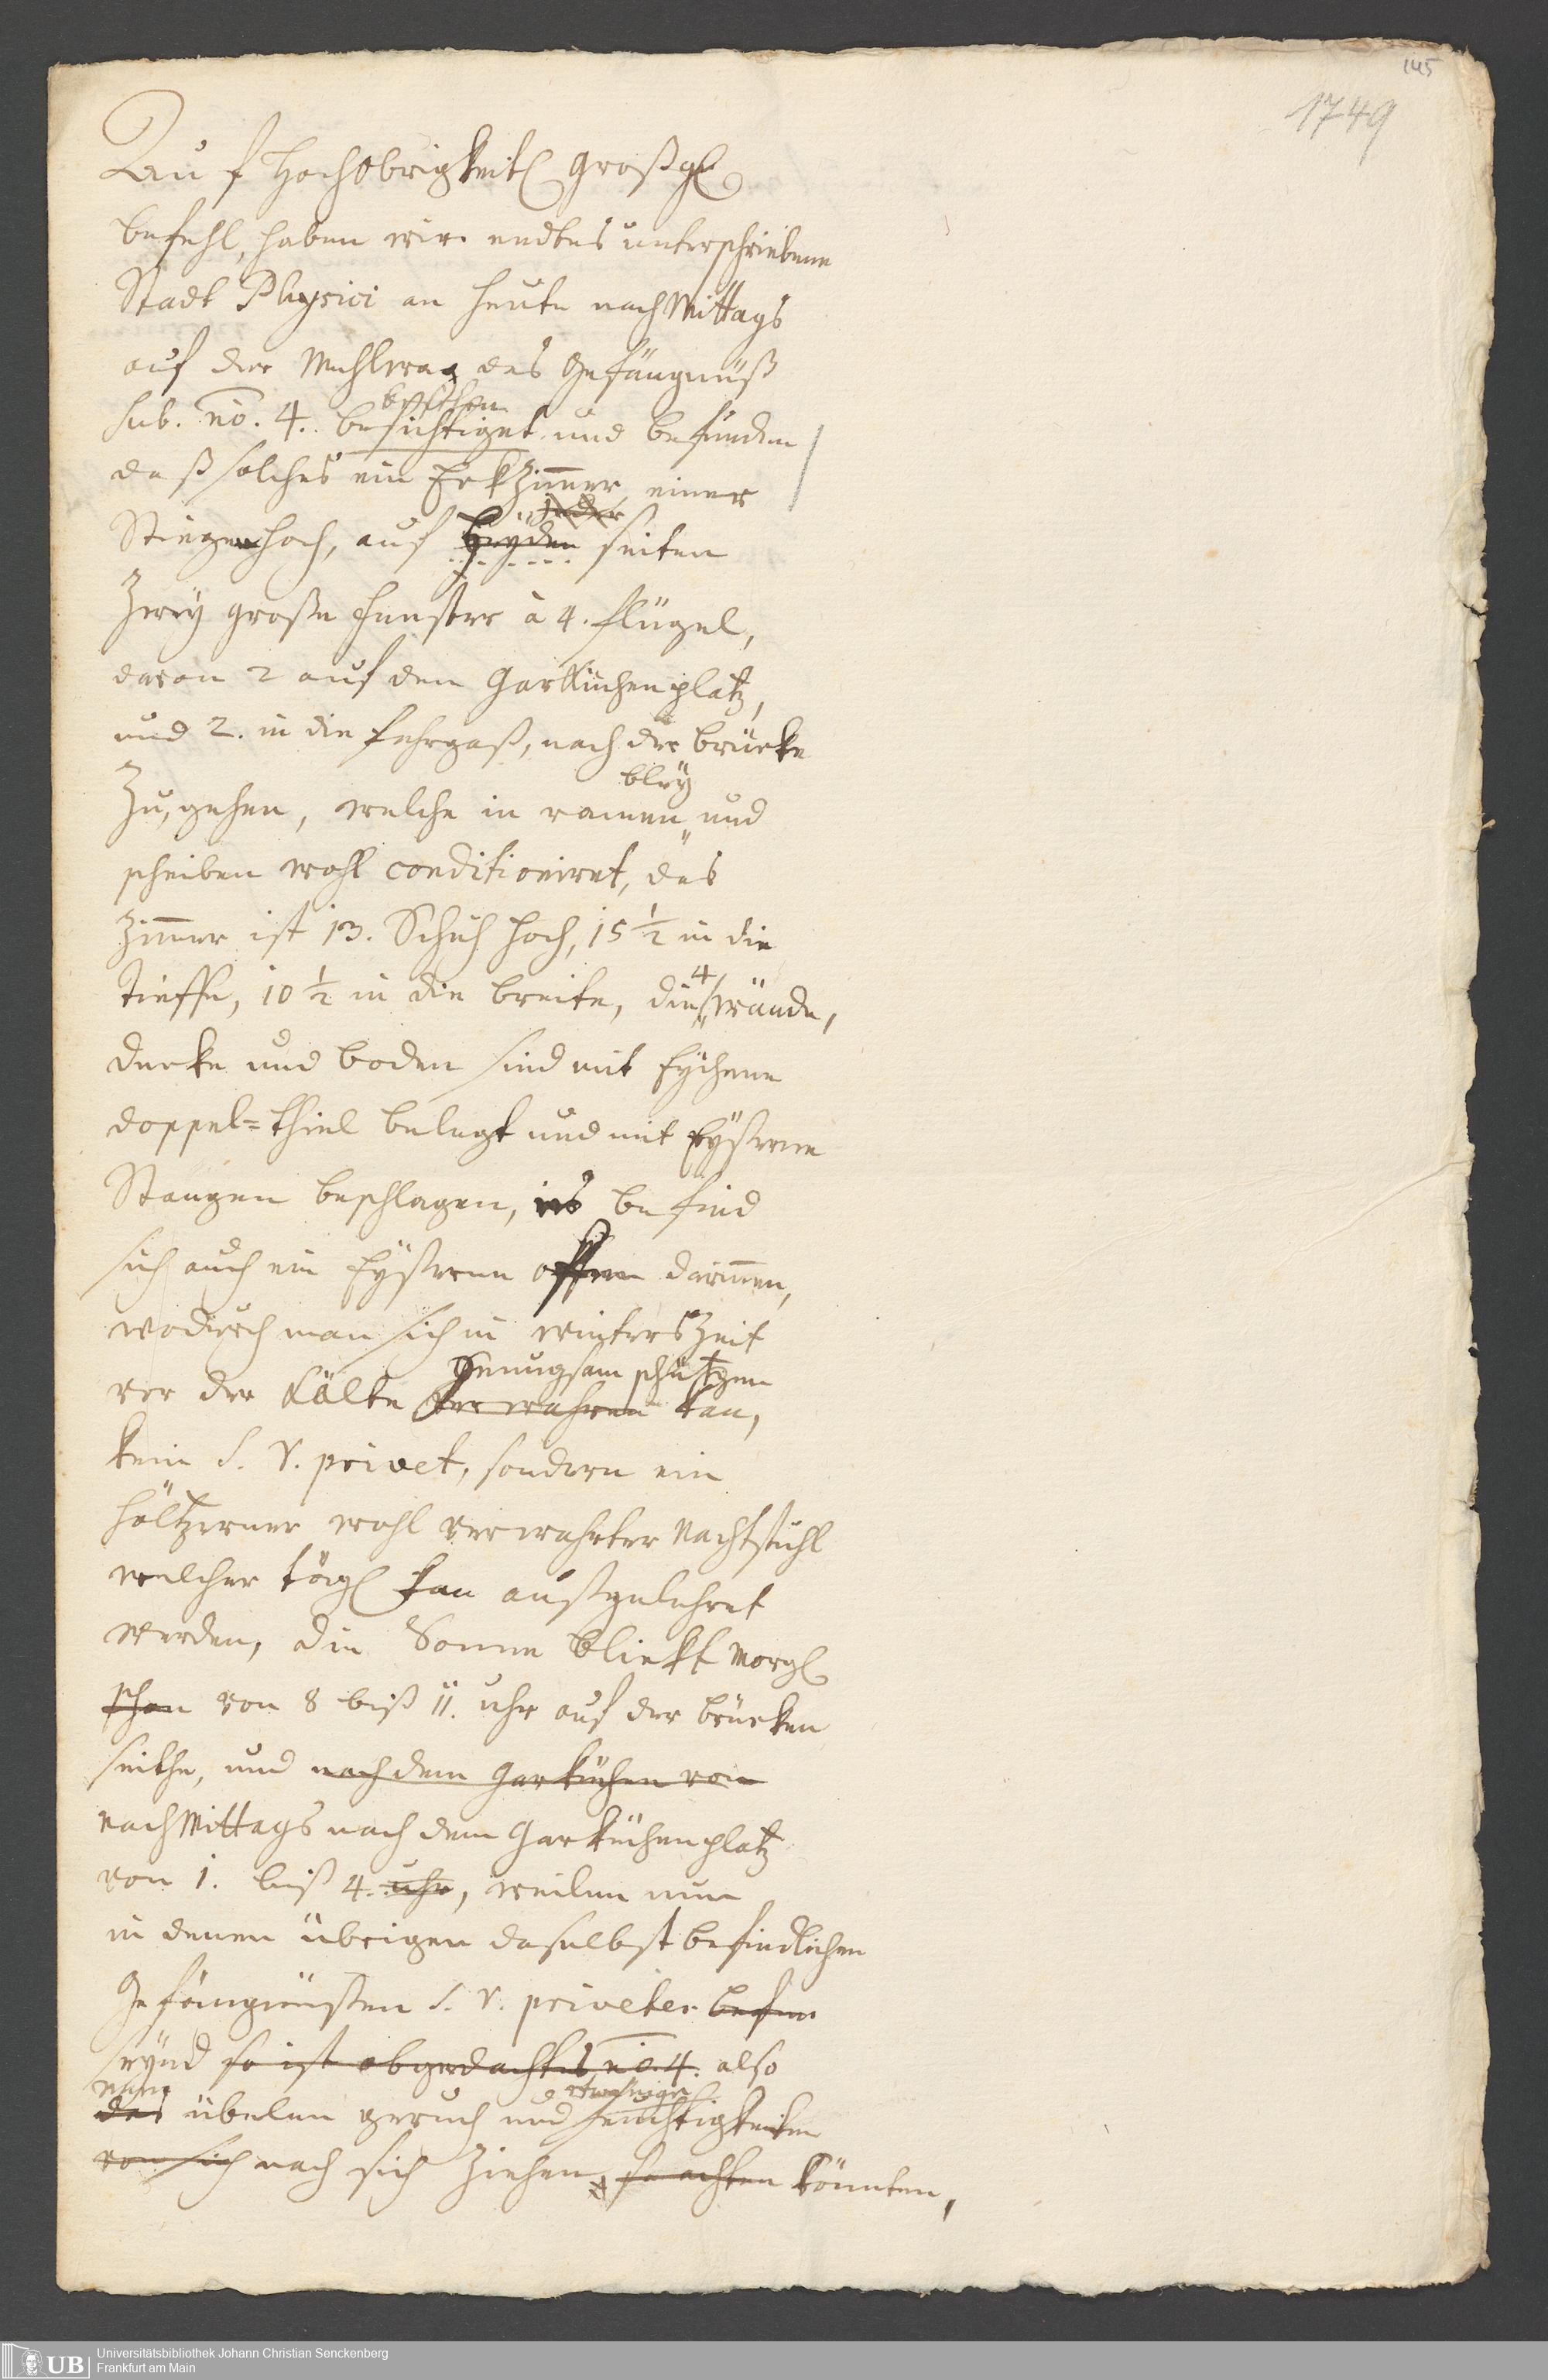 145
1749
Auf Hochobrigkeitl Großgl
befehl, haben wir endtes unterschriebene
Stadt Physici an heute nachMittags
auf der Mehlwag das Gefängnüß
besehen
sub. no. 4. besichtiget und befunden
daß solches ein EckZimmer, einer
jeder
Stiegen hoch, auf beyden seiten
Zwey große fenster à 4. flügel,
davon 2 auf den Garküchenplatz,
und 2. in die fahrgaß, nach der brücke
bley
Zu, gehen, welche in ramen und
scheiben wohl conditioniret, das
Zimmer ist 13. Schuh hoch, 15 ½ in die
4
tieffe, 10 ½ in die breite, die wände,
decke und boden sind mit Eychene
doppel=thiel belegt und mit Eyßerne
Stangen beschlagen, es befind
sich auch ein Eyßerne offen darinnen,
wodurch man sich in winters Zeit
genugsam schützen
vor der Kälte verwahren kan,
kein S. V. privet, sondern ein
höltzerner wohl verwahrter Nachtstuhl
welcher tägl kan außgelehret
werden, die Sonne blickt Morgl
schon von 8 biß 11. uhr auf der brücken
seithe, und nach dem Garküchen von
nachMittags nach dem Garküchenplatz
von 1. biß 4. uhr, weilen nun
in denen übrigen daselbst befindlichen
Gefängnüßen S. V. priveter befin
seynd so ist obgedachtes no. 4. also
einen
etwaniger
das übelen geruch und feuchtigkeiten
von sich nach sich Ziehen, so achten könnten,
UB Universitätsbibliothek Johann Christian Senckenberg
Frankfurt am Main